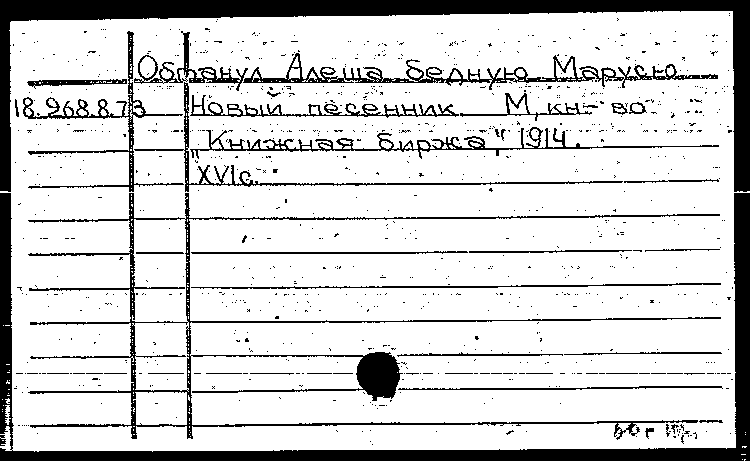 Обманул Алеша бедную Марусю
18.968.8.73 Новый песенник. М, кн-во
„Книжная биржа", 1914.
XVI с.